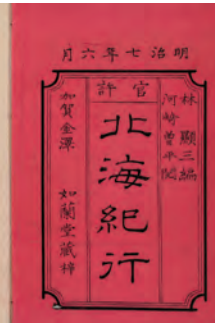 明治七年六月
官許
林顯三編
河﨑曽平閲
北海紀行
加賀金澤
如蘭堂藏梓